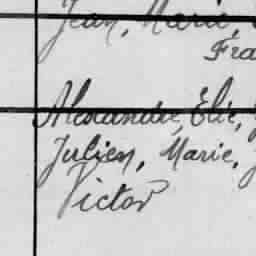 Jean, Marie,
Fra
Alexandre, Elie,
Julien, Marie, J
Victor